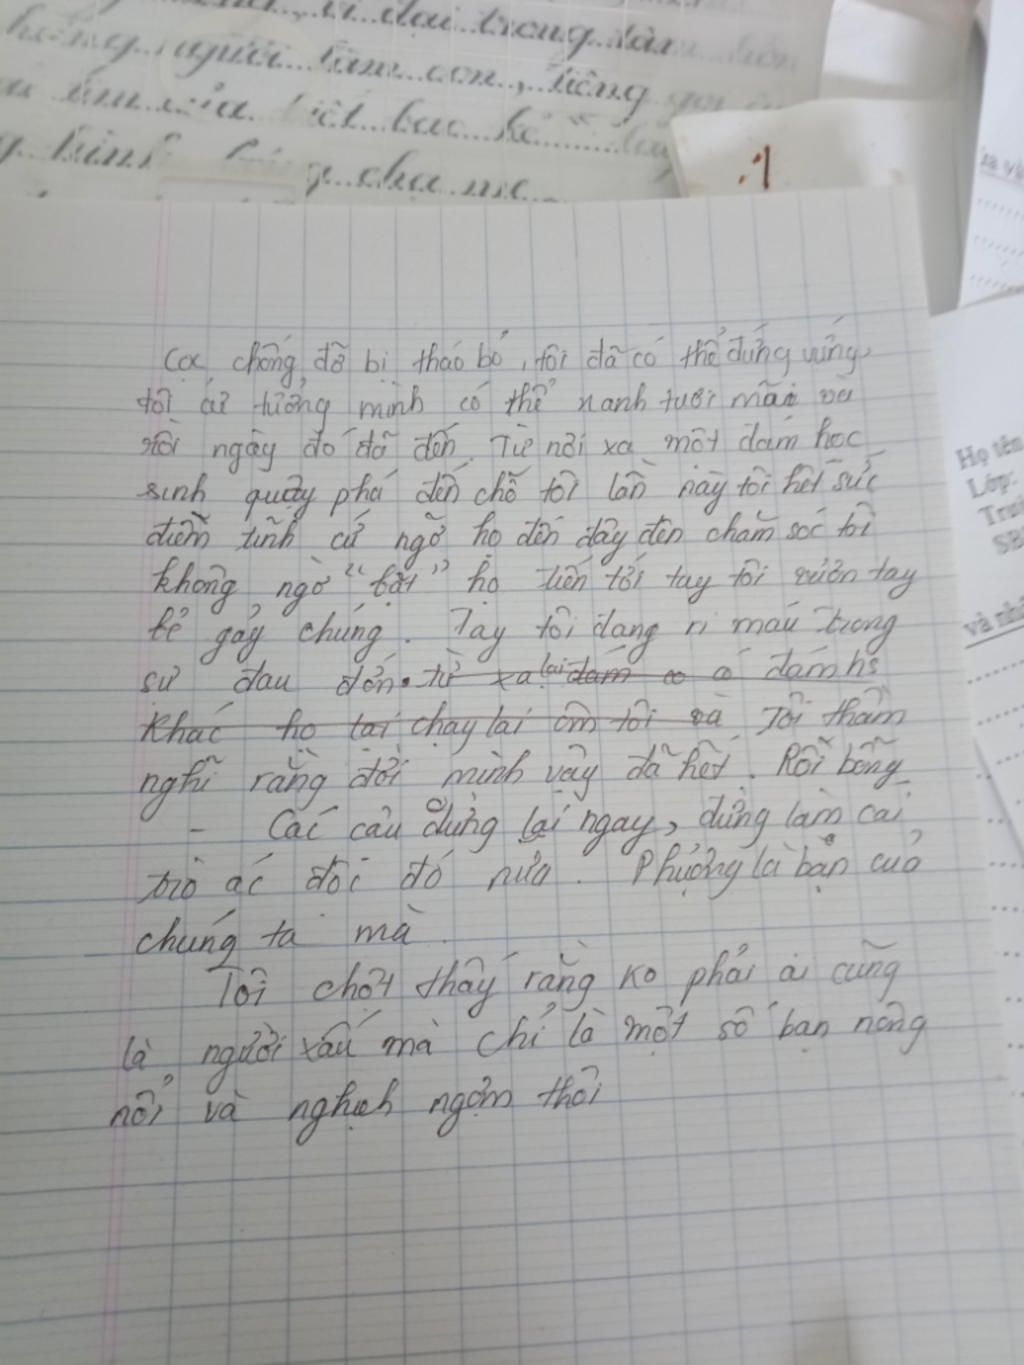 đại trong tâm
người làm con, tiếng gọi
tim của biết bao kẻ
cha mẹ
.1
Họ tên
Lớp:
Trườ
SB
và nhậ
Cọc chống đỡ bị tháo bỏ, tôi đã có thể đứng vững,
tôi cứ tưởng mình có thể xanh tươi mãi và
rồi ngày đó đã đến. Từ nơi xa một đám học
sinh quậy phá đến chỗ tôi lần này tôi hết sức
điềm tĩnh cứ ngỡ họ đến đây đến chăm sóc tôi
không ngờ "bặt" họ tiến tới tay tôi vươn tay
bẻ gãy chúng. Tay tôi đang rỉ máu trong
sự đau đớn. từ xa lại đám có đám hs
khác họ lại chạy lại ôm tôi và Tôi thầm
nghĩ rằng đời mình vậy đã hết. Rồi bỗng
- Các cậu dừng lại ngay, đừng làm cái
trò ác độc đó nữa. Phượng là bạn của
chúng ta mà.
Tôi chợt thấy rằng ko phải ai cũng
là người xấu mà chỉ là một số bạn nông
nổi và nghịch ngợm thôi